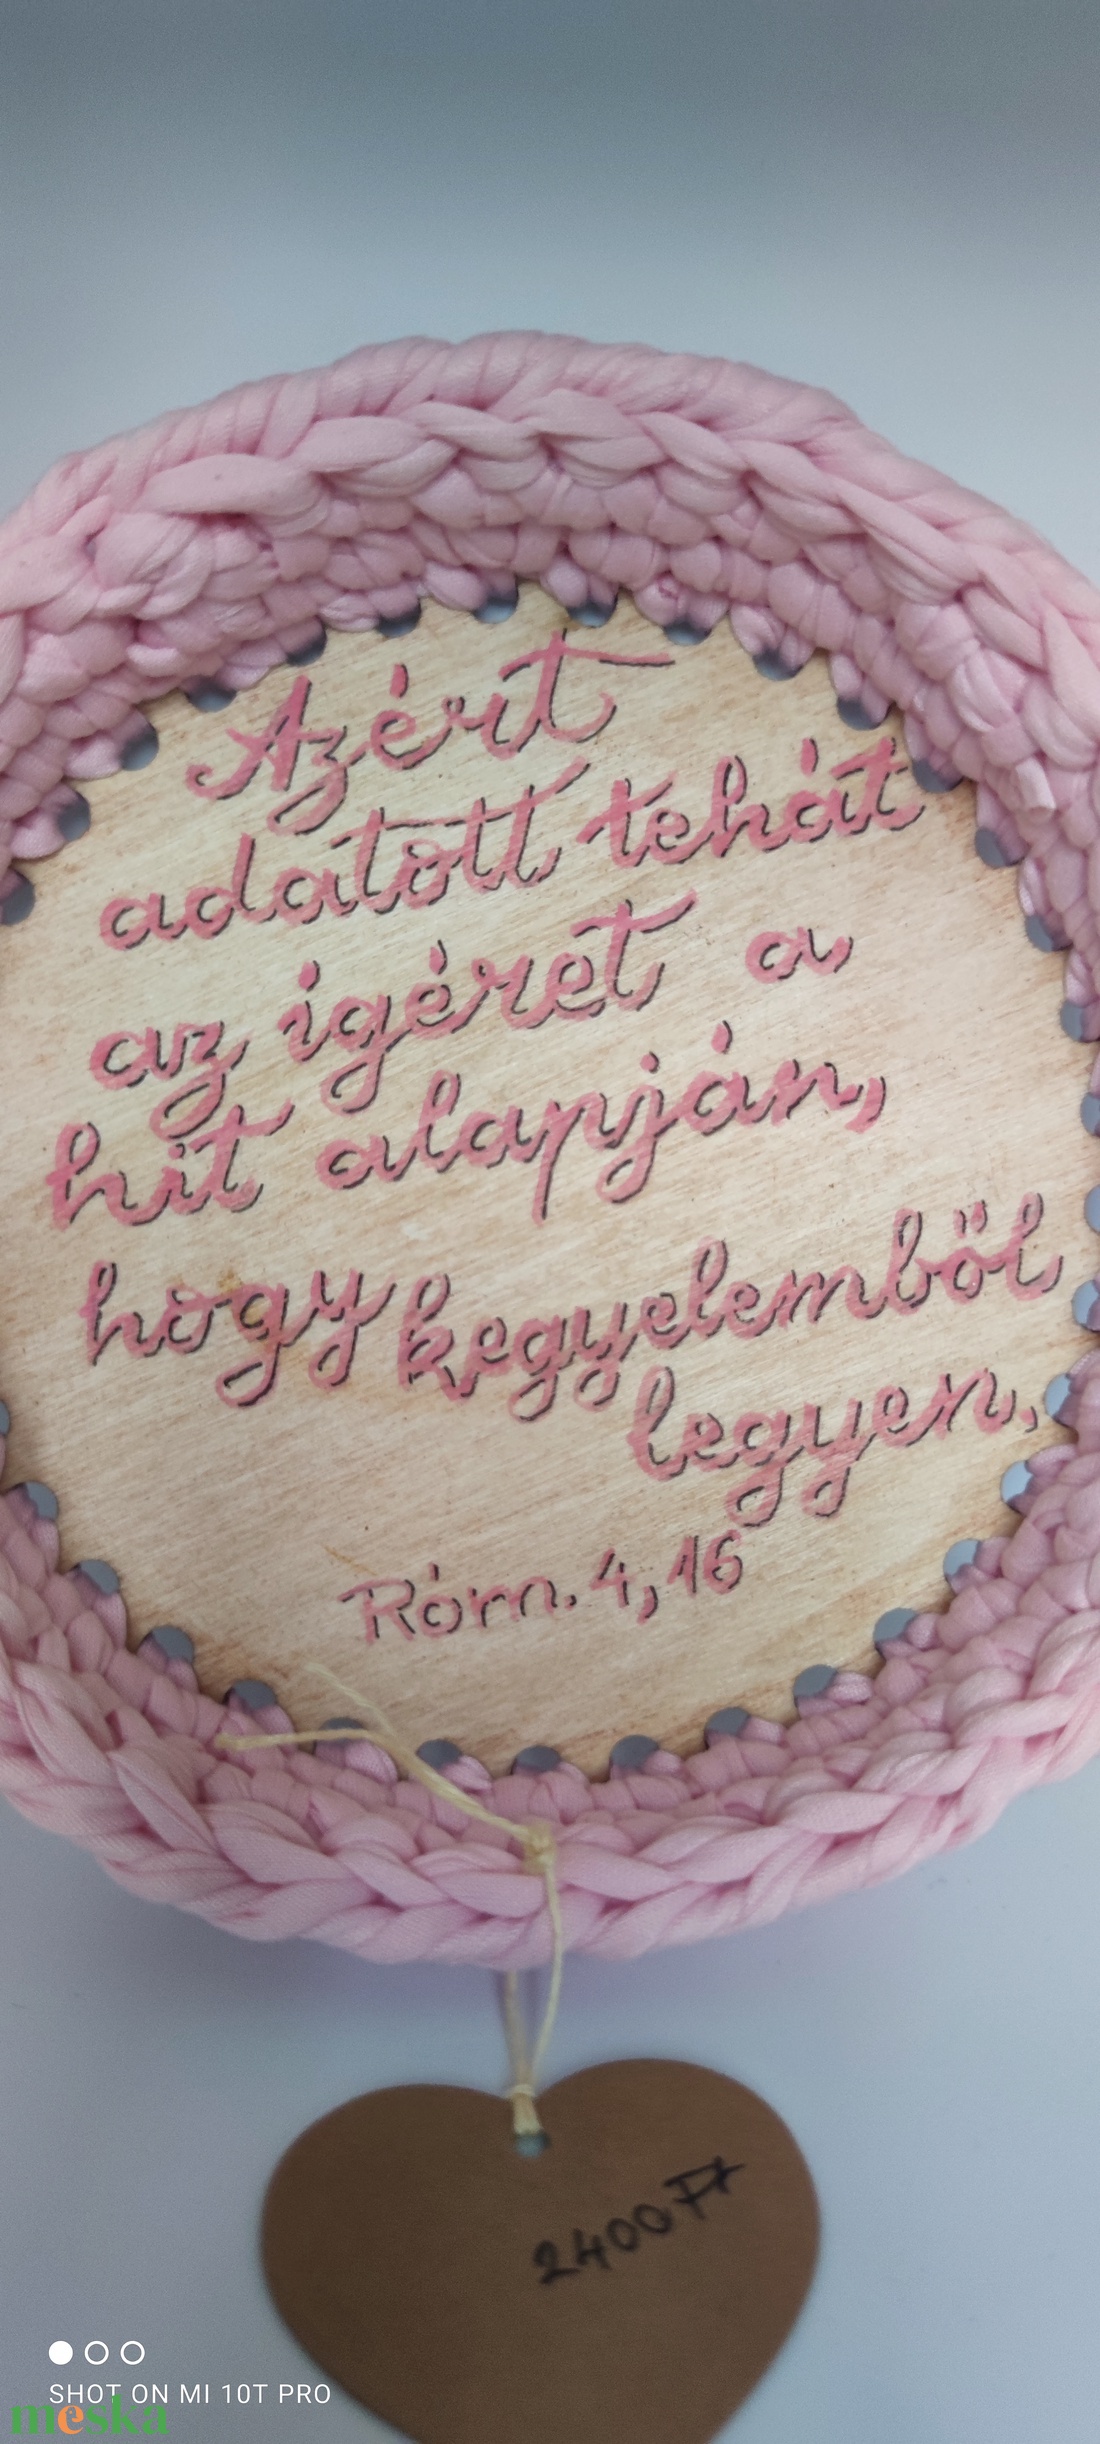 Azért
adatott tehát
az igéret a
hit alapján,
hogy kegyelemből
legyen.
Róm. 4,16
2400 Ft
SHOT ON MI 10T PRO
meska